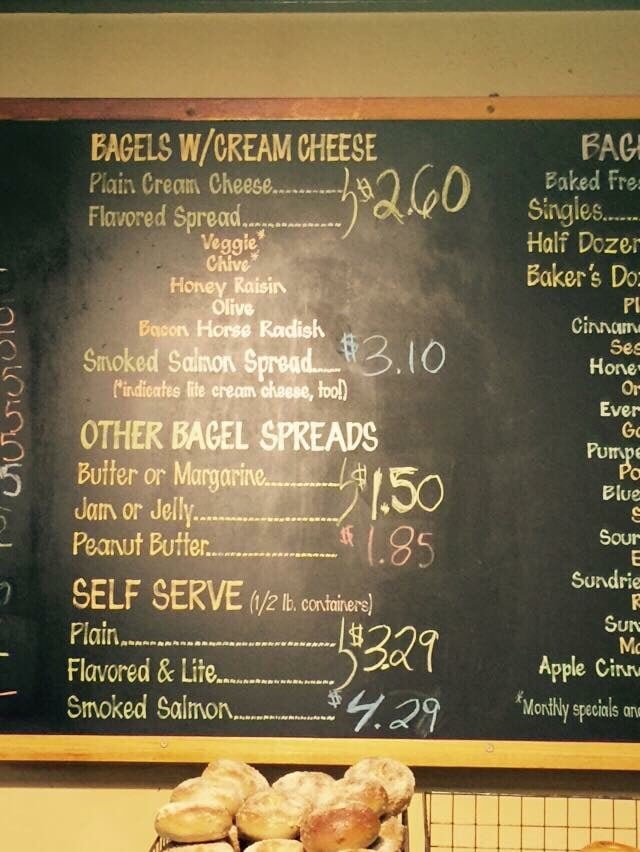 BAGELS W/CREAM CHEESE
Plain Cream Cheese........ $2.60
Flavored Spread........
Veggie*
Chive*
Honey Raisin
Olive
Bacon Horse Radish
Smoked Salmon Spread.... $3.10
(*indicates lite cream cheese, too!)
OTHER BAGEL SPREADS
Butter or Margarine........ $1.50
Jam or Jelly........
Peanut Butter........ $1.85
SELF SERVE (1/2 lb. containers)
Plain........ $3.29
Flavored & Lite........
Smoked Salmon........ $4.29
BAG
Baked Fre
Singles....
Half Dozen
Baker's Do
Pl
Cinnam
Ses
Hone
On
Ever
Ga
Pumpe
Po
Blue
S
Sour
E
Sundrie
R
Sun
Mo
Apple Cinn
*Monthly specials an